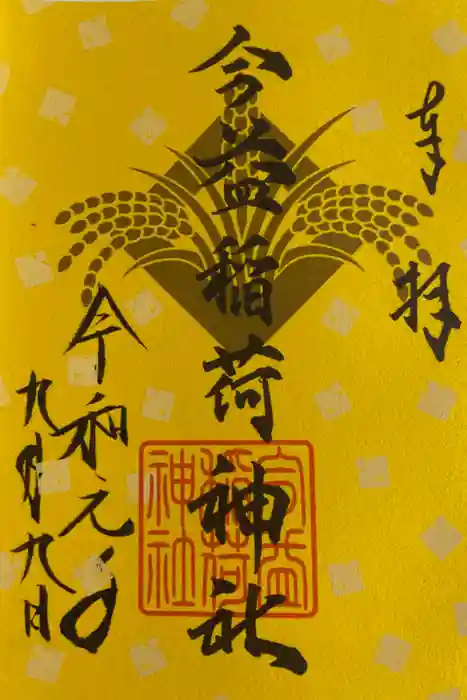 奉拝
益稲荷神社
令和元年
九月九日
益
稲荷
神社